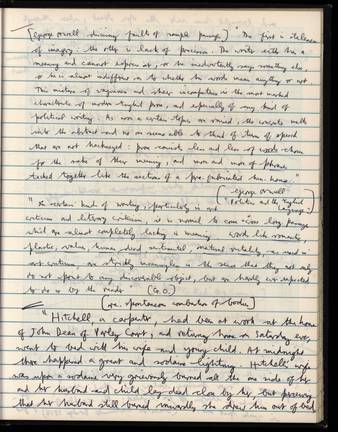 [George Orwell discussing faults of sample passage] The first is staleness
of imagery: the other is lack of precision. The writer either has a
meaning and cannot express it, or he inadvertently says something else,
or he is almost indifferent as to whether his words mean anything or not.
This mixture of vagueness and sheer incompetence is the most marked
characteristic of modern English prose, and especially of any kind of
political writing. As soon as certain topics are raised, the concrete melts
into the abstract and no one seems able to think of turns of speech
that are not hackneyed: prose consists less and less of words chosen
for the sake of their meaning, and more and more of phrases
tacked together like the sections of a pre-fabricated hen-house."
[George Orwell
Politics and the English
Language]
"In certain kinds of writing, particularly in art
criticism and literary criticism, it is normal to come across long passages
which are almost completely lacking in meaning. Words like romantic,
plastic, values, human, dead, sentimental, natural, vitality, as used in
art criticism, are strictly meaningless, in the sense that they not only
do not point to any discoverable object, but are hardly ever expected
to do so by the reader. (G.O.)
[re. spontaneous combustion of bodies]
"Hitchell, a carpenter, had been at work at the house
of John Dean of Parley Court, and returning home on Saturday eve,
went to bed with his wife and young child. At midnight
there happened a great and sodaine lightning. Hitchell's wife
was upon a sodaine very grievously burned all the one side of her
and her husband and child lay dead close by her, but perceiving
that her husband still burned inwardly she drew him out of bed